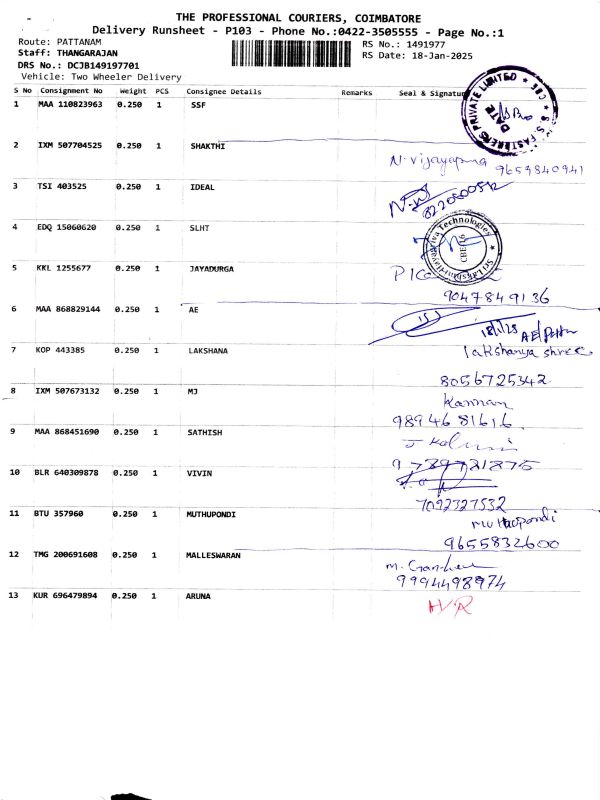 THE PROFESSIONAL COURIERS, COIMBATORE
Delivery Runsheet - P103 - Phone No.:0422-3505555 - Page No.:1
Route: PATTANAM
RS No.: 1491977
Staff: THANGARAJAN
RS Date: 18-Jan-2025
DRS No.: DCJB149197701
Vehicle: Two Wheeler Delivery
S No Consignment No Weight PCS Consignee Details Remarks Seal & Signature
1 MAA 110823963 0.250 1 SSF
PRIVATE LIMITED ★ CBE
DATE
2 IXM 507704525 0.250 1 SHAKTHI
N. vijayapria
9659840941
3 TSI 403525 0.250 1 IDEAL
4 EDQ 15060620 0.250 1 SLHT
Technologies
CBE-16
5 KKL 1255677 0.250 1 JAYADURGA
9047849136
6 MAA 868829144 0.250 1 AE
18/1/25
7 KOP 443385 0.250 1 LAKSHANA
lakshanya shree
8056725342
8 IXM 507673132 0.250 1 MJ
Kannan
9894681616
9 MAA 868451690 0.250 1 SATHISH
9789721875
10 BLR 640309878 0.250 1 VIVIN
7092327532
11 BTU 357960 0.250 1 MUTHUPONDI
Muthupondi
9655832600
12 TMG 200691608 0.250 1 MALLESWARAN
9994498974
13 KUR 696479894 0.250 1 ARUNA